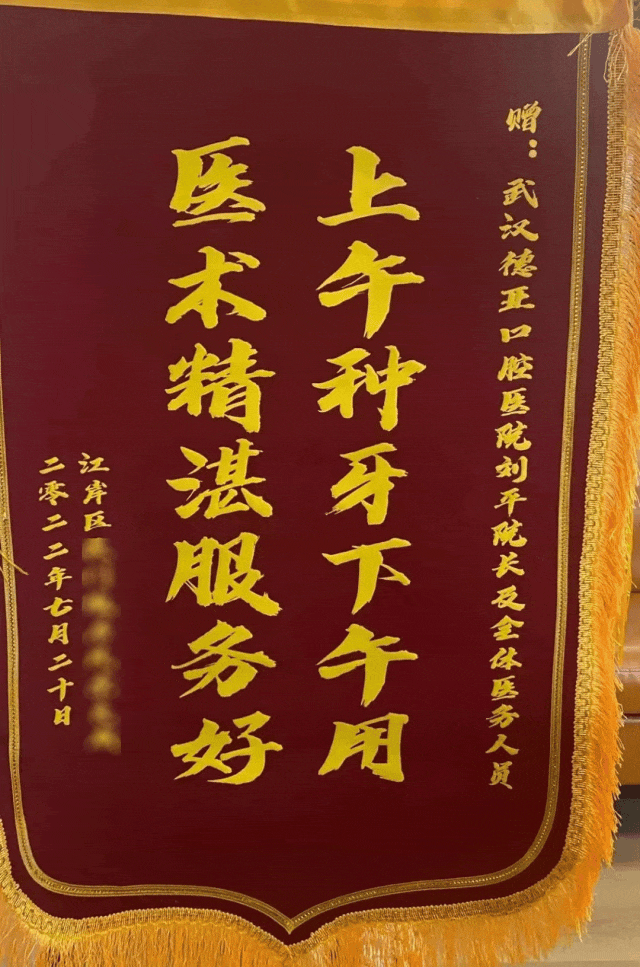 赠：武汉德亚口腔医院刘平院长及全体医务人员
上午种牙下午用
医术精湛服务好
江岸区
二零二二年七月二十日